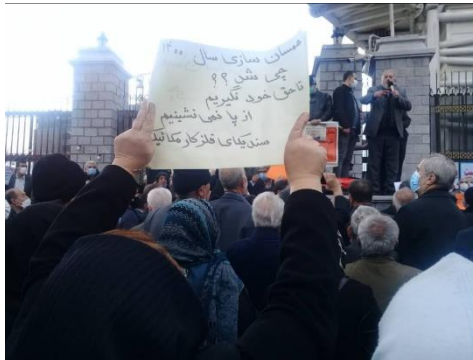 همسان سازی سال ۱۴۰۰
چی شد ؟؟
تا حق خود نگیریم
از پا نمی نشینیم
سندیکای فلزکار مکانیک